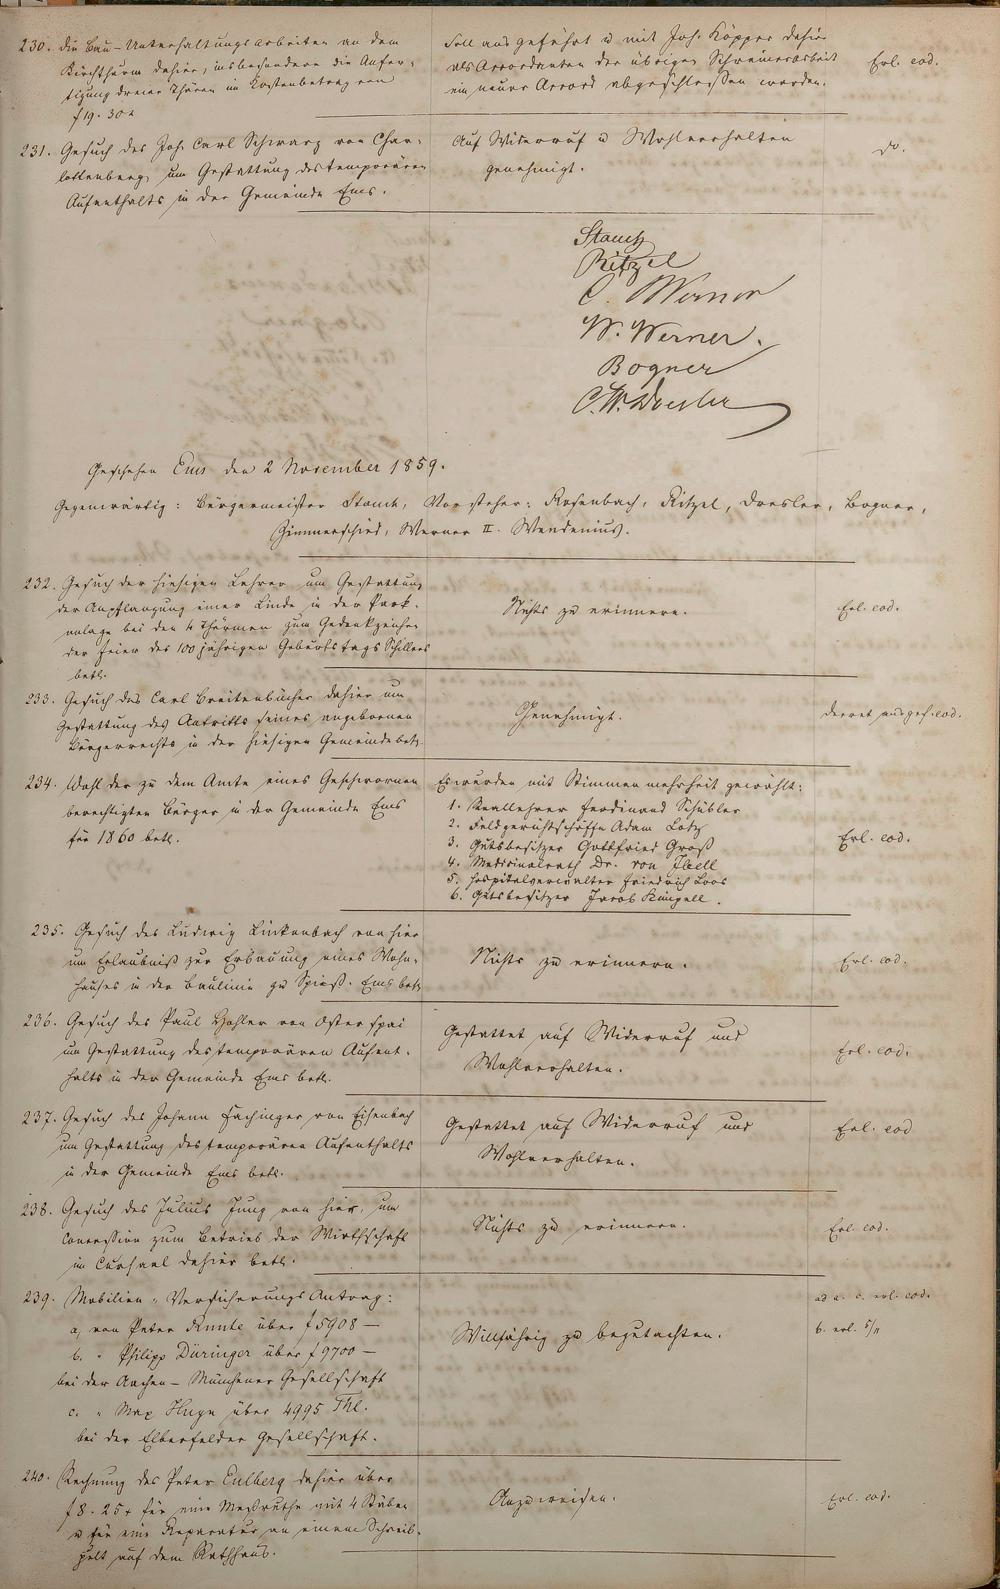 230. die Bau-Unterhaltungsarbeiten an dem
Kirchthurm dahier, insbesondere die Anfer-
tigung dreier Thüren im Kostenbetrag von
f 19. 30 x
Soll ausgeführt u mit Joh. Köpper dahier
als Accordanten der übrigen Schreinerarbeit
ein neuer Accord abgeschlossen werden.
Erl. eod.
231. Gesuch des Joh. Carl Schwarz von Char-
lottenberg, um Gestattung des temporären
Aufenthalts in der Gemeinde Ems.
Auf Widerruf u Wohlverhalten
genehmigt.
do.
Stauch
Ritzel
C. Werner
W. Werner.
Bogner
C. W. Dresler
Geschehen Ems den 2 November 1859.
Gegenwärtig: Bürgermeister Stauch, Vorsteher: Rosenbach, Ritzel, Dresler, Bogner,
Zimmerschied, Werner II. Wendenius.
232. Gesuch der hiesigen Lehrer um Gestattung
der Anpflanzung einer Linde in der Park-
anlage bei den 4 Thürmen zum Gedenkzeichen
der Feier des 100 jährigen Geburtstags Schillers
betr.
Nichts zu erinnern.
Erl. eod.
233. Gesuch des Carl Breitenbücher dahier um
Gestattung des Antritts seines angebornen
Bürgerrechts in der hiesigen Gemeinde betr.
Genehmigt.
Decret ausgef. eod.
234. Wahl der zu dem Amte eines Geschwornen
berechtigten Bürger in der Gemeinde Ems
für 1860 betr.
Es wurden mit Stimmenmehrheit gewählt:
1. Reallehrer Ferdinand Schübler
2. Feldgerichtsschöffe Adam Lotz
3. Gutsbesitzer Gottfried Groß
4. Medicinalrath Dr. von Ibell
5. Hospitalverwalter Friedrich Loos
6. Gutsbesitzer Jacob
Erl. eod.
235. Gesuch des Ludwig Linkenbach von hier
um Erlaubniß zur Erbauung eines Wohn-
hauses in der Baulinie zu Spieß-Ems betr.
Nichts zu erinnern.
Erl. eod.
236. Gesuch des Paul Hohler von Osterspai
um Gestattung des temporären Aufent-
halts in der Gemeinde Ems betr.
Gestattet auf Widerruf und
Wohlverhalten.
Erl. eod.
237. Gesuch des Johann Fachinger von Eisenbach
um Gestattung des temporären Aufenthalts
in der Gemeinde Ems betr.
Gestattet auf Widerruf und
Wohlverhalten.
Erl. eod
238. Gesuch des Julius Jung von hier, um
Concession zum Betrieb der Wirthschaft
im Cursaal dahier betr.
Nichts zu erinnern.
Erl. eod.
239. Mobilien-Versicherungs Antrag:
a, von Peter Runte über f 5908 —
b. " Philipp Düringer über f 9700 —
bei der Aachen-Münchener Gesellschaft
c. " Max Huyn über 4995 Thl.
bei der Elberfelder Gesellschaft.
Willfährig zu begutachten.
ad a. c. erl. eod.
b. erl. 5/11
240. Rechnung des Peter Eulberg dahier über
f 8. 25 x für eine Meßruthe mit 4 Stäben
u für eine Reparatur an einem Schreib-
pult auf dem Rathhaus.
Anzuweisen.
Erl. eod.